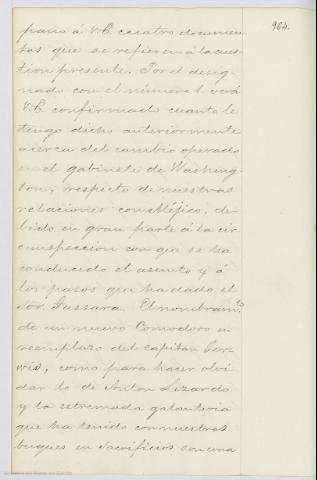 964.
paño á V.E. cuatro documen-
tos que se refieren á la cues-
tion presente. Por el desig-
nado con el número 1. verá
V.E. confirmado cuanto le
tengo dicho anteriormente
acerca del cambio operado
en el gabinete de Washing-
ton, respecto de nuestras
relaciones con Méjico, de-
bido en gran parte á la cir-
cunspeccion con que se ha
conducido el asunto y á
los pasos que ha dado el
Sôr. Tassara. El nombram.to
de un nuevo Comodoro en
reemplazo del capitan Ger-
vis, como para hacer olvi-
dar lo de Anton Lizardo
y la estremada galanteria
que ha tenido con nuestros
buques en Sacrificios son una